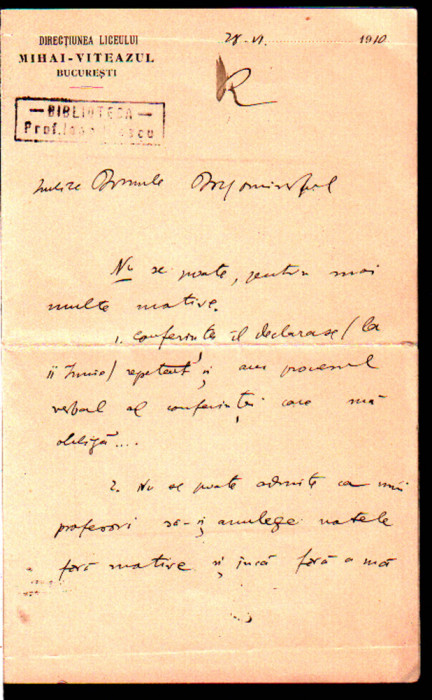 DIRECȚIUNEA LICEULUI
MIHAI-VITEAZUL
BUCUREȘTI
28-VI. 1910
R
— BIBLIOTECA —
Prof. Ioan
Iubite Domnule
Nu se poate, pentru mai
multe motive.
1. conferința îl declarase / la
11 Iunie / repetent și am procesul
verbal al conferinței care mă
obligă....
2. Nu se poate admite ca unii
profesori să-și anulege notele
fără motive și încă fără a mă